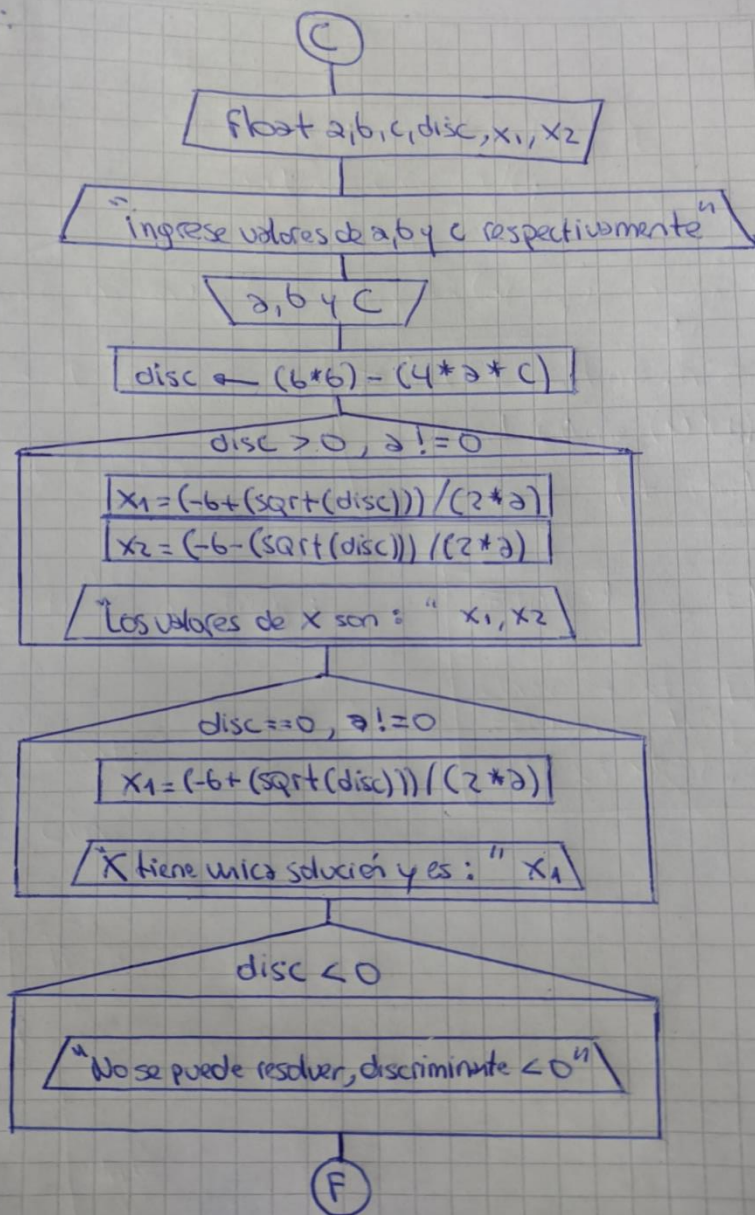 C
float a,b,c,disc,x1,x2
"ingrese valores de a,b y c respectivamente"
a,b y c
disc ← (b*b) - (4*a*c)
disc > 0, a!=0
x1=(-b+(sqrt(disc)))/(2*a)
x2=(-b-(sqrt(disc)))/(2*a)
"Los valores de x son: " x1,x2
disc==0, a!=0
x1=(-b+(sqrt(disc)))/(2*a)
"X tiene unica solución y es: " x1
disc < 0
"No se puede resolver, discriminante < 0"
F